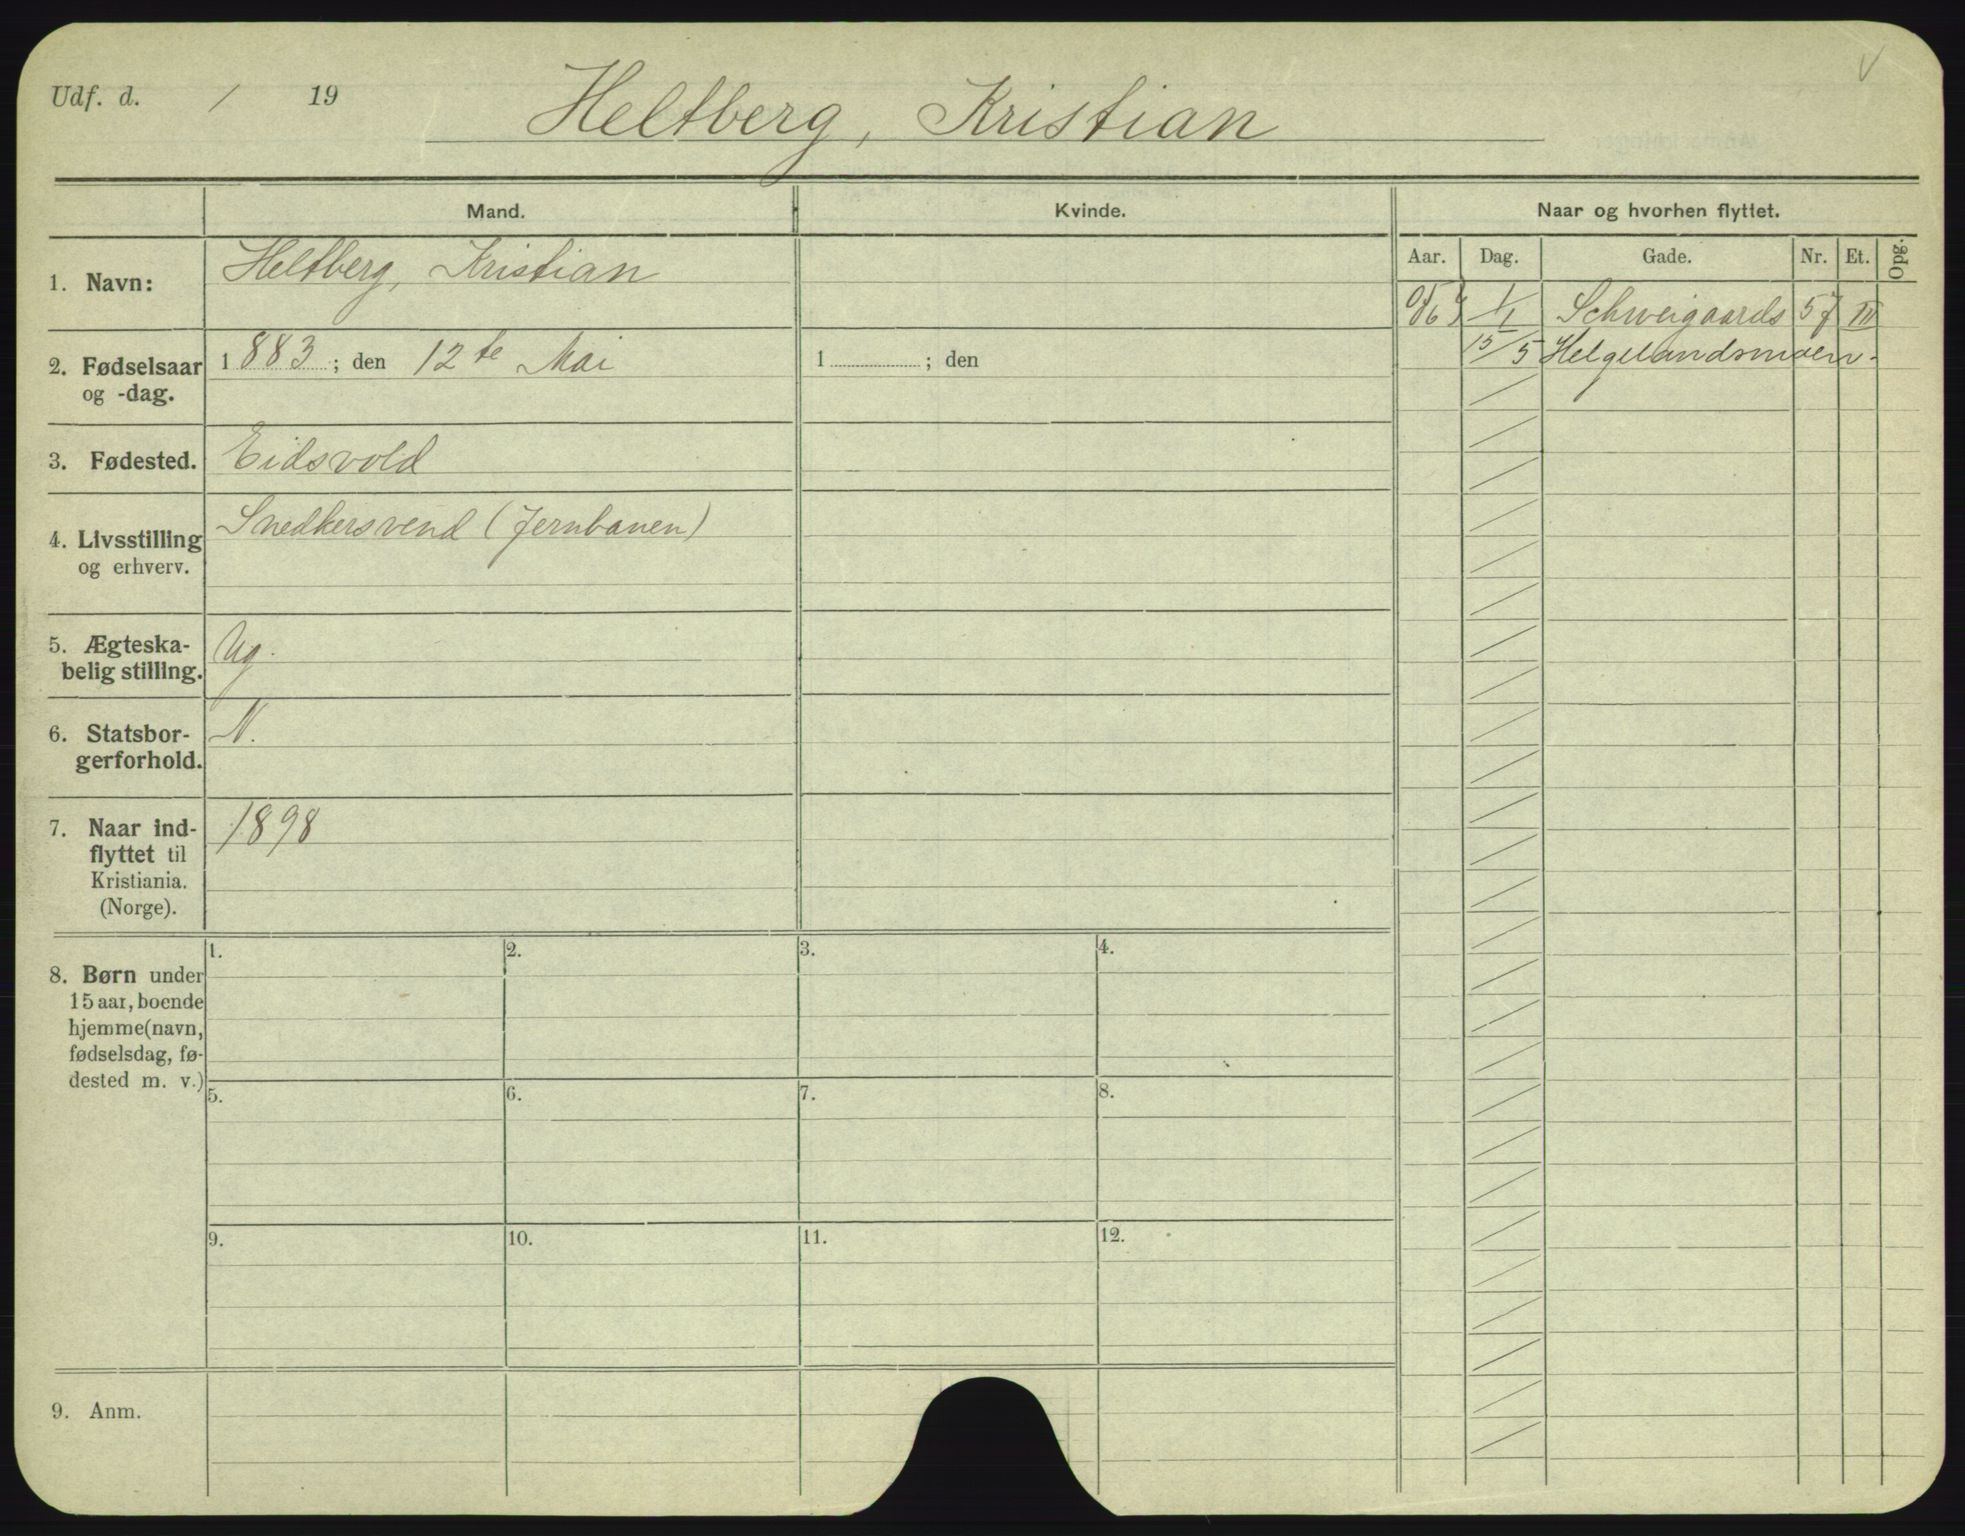 Udf. d. / 19
Heltberg, Kristian
Mand. Kvinde. Naar og hvorhen flyttet.
Aar. Dag. Gade. Nr. Et. Opg.
1. Navn: Heltberg, Kristian
1/1 Schweigaards 57 III
15/5 Helgelandsmoen.
2. Fødselsaar 1883; den 12te Mai 1 ; den
og -dag.
3. Fødested. Eidsvold
4. Livsstilling Snedkersvend (Jernbanen)
og erhverv.
5. Ægteska- Ug.
belig stilling.
6. Statsbor- N.
gerforhold.
7. Naar ind- 1898
flyttet til
Kristiania.
(Norge).
8. Børn under
15 aar, boende
hjemme (navn,
fødselsdag, fø-
dested m. v.)
1. 2. 3. 4.
5. 6. 7. 8.
9. 10. 11. 12.
9. Anm.